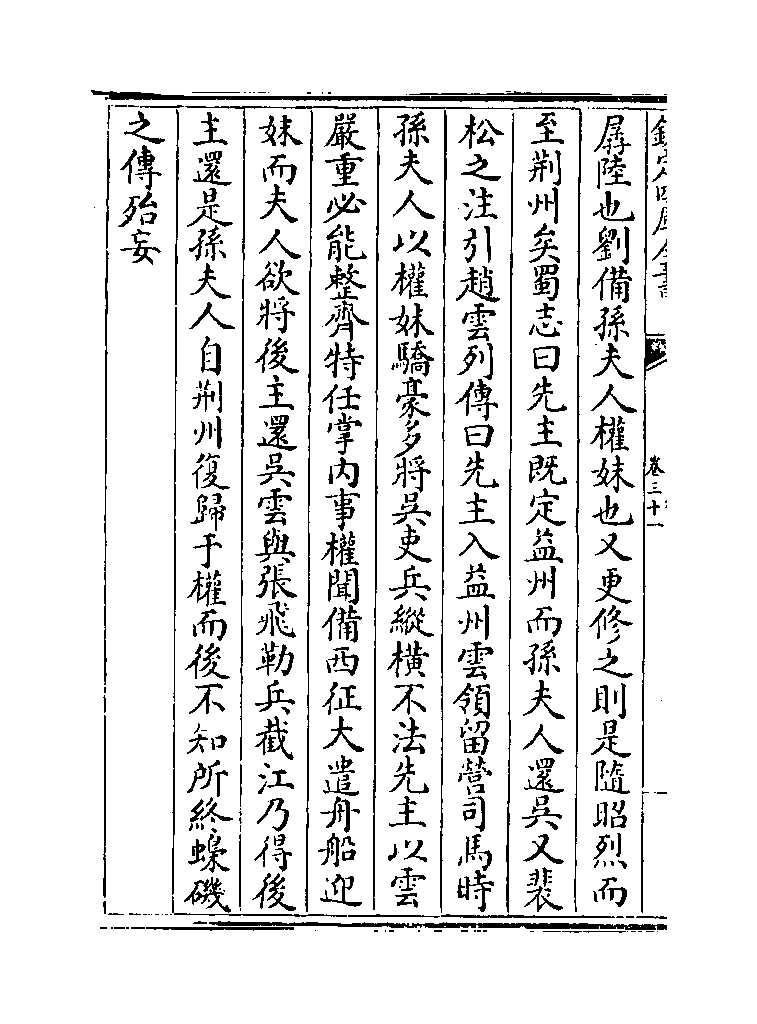 欽定四庫全書
卷三十一
孱陸也劉備孫夫人權妹也又更修之則是隨昭烈而
至荆州矣蜀志曰先主既定益州而孫夫人還吳又裴
松之注引趙雲列傳曰先主入益州雲領留營司馬時
孫夫人以權妹驕豪多將吳吏兵縱橫不法先主以雲
嚴重必能整齊特任掌内事權聞備西征大遣舟船迎
妹而夫人欲將後主還吳雲與張飛勒兵截江乃得後
主還是孫夫人自荆州復歸于權而後不知所終蟂磯
之傳殆妄